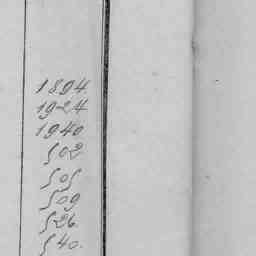 1894.
1924
1940
502
505
509
526.
540.